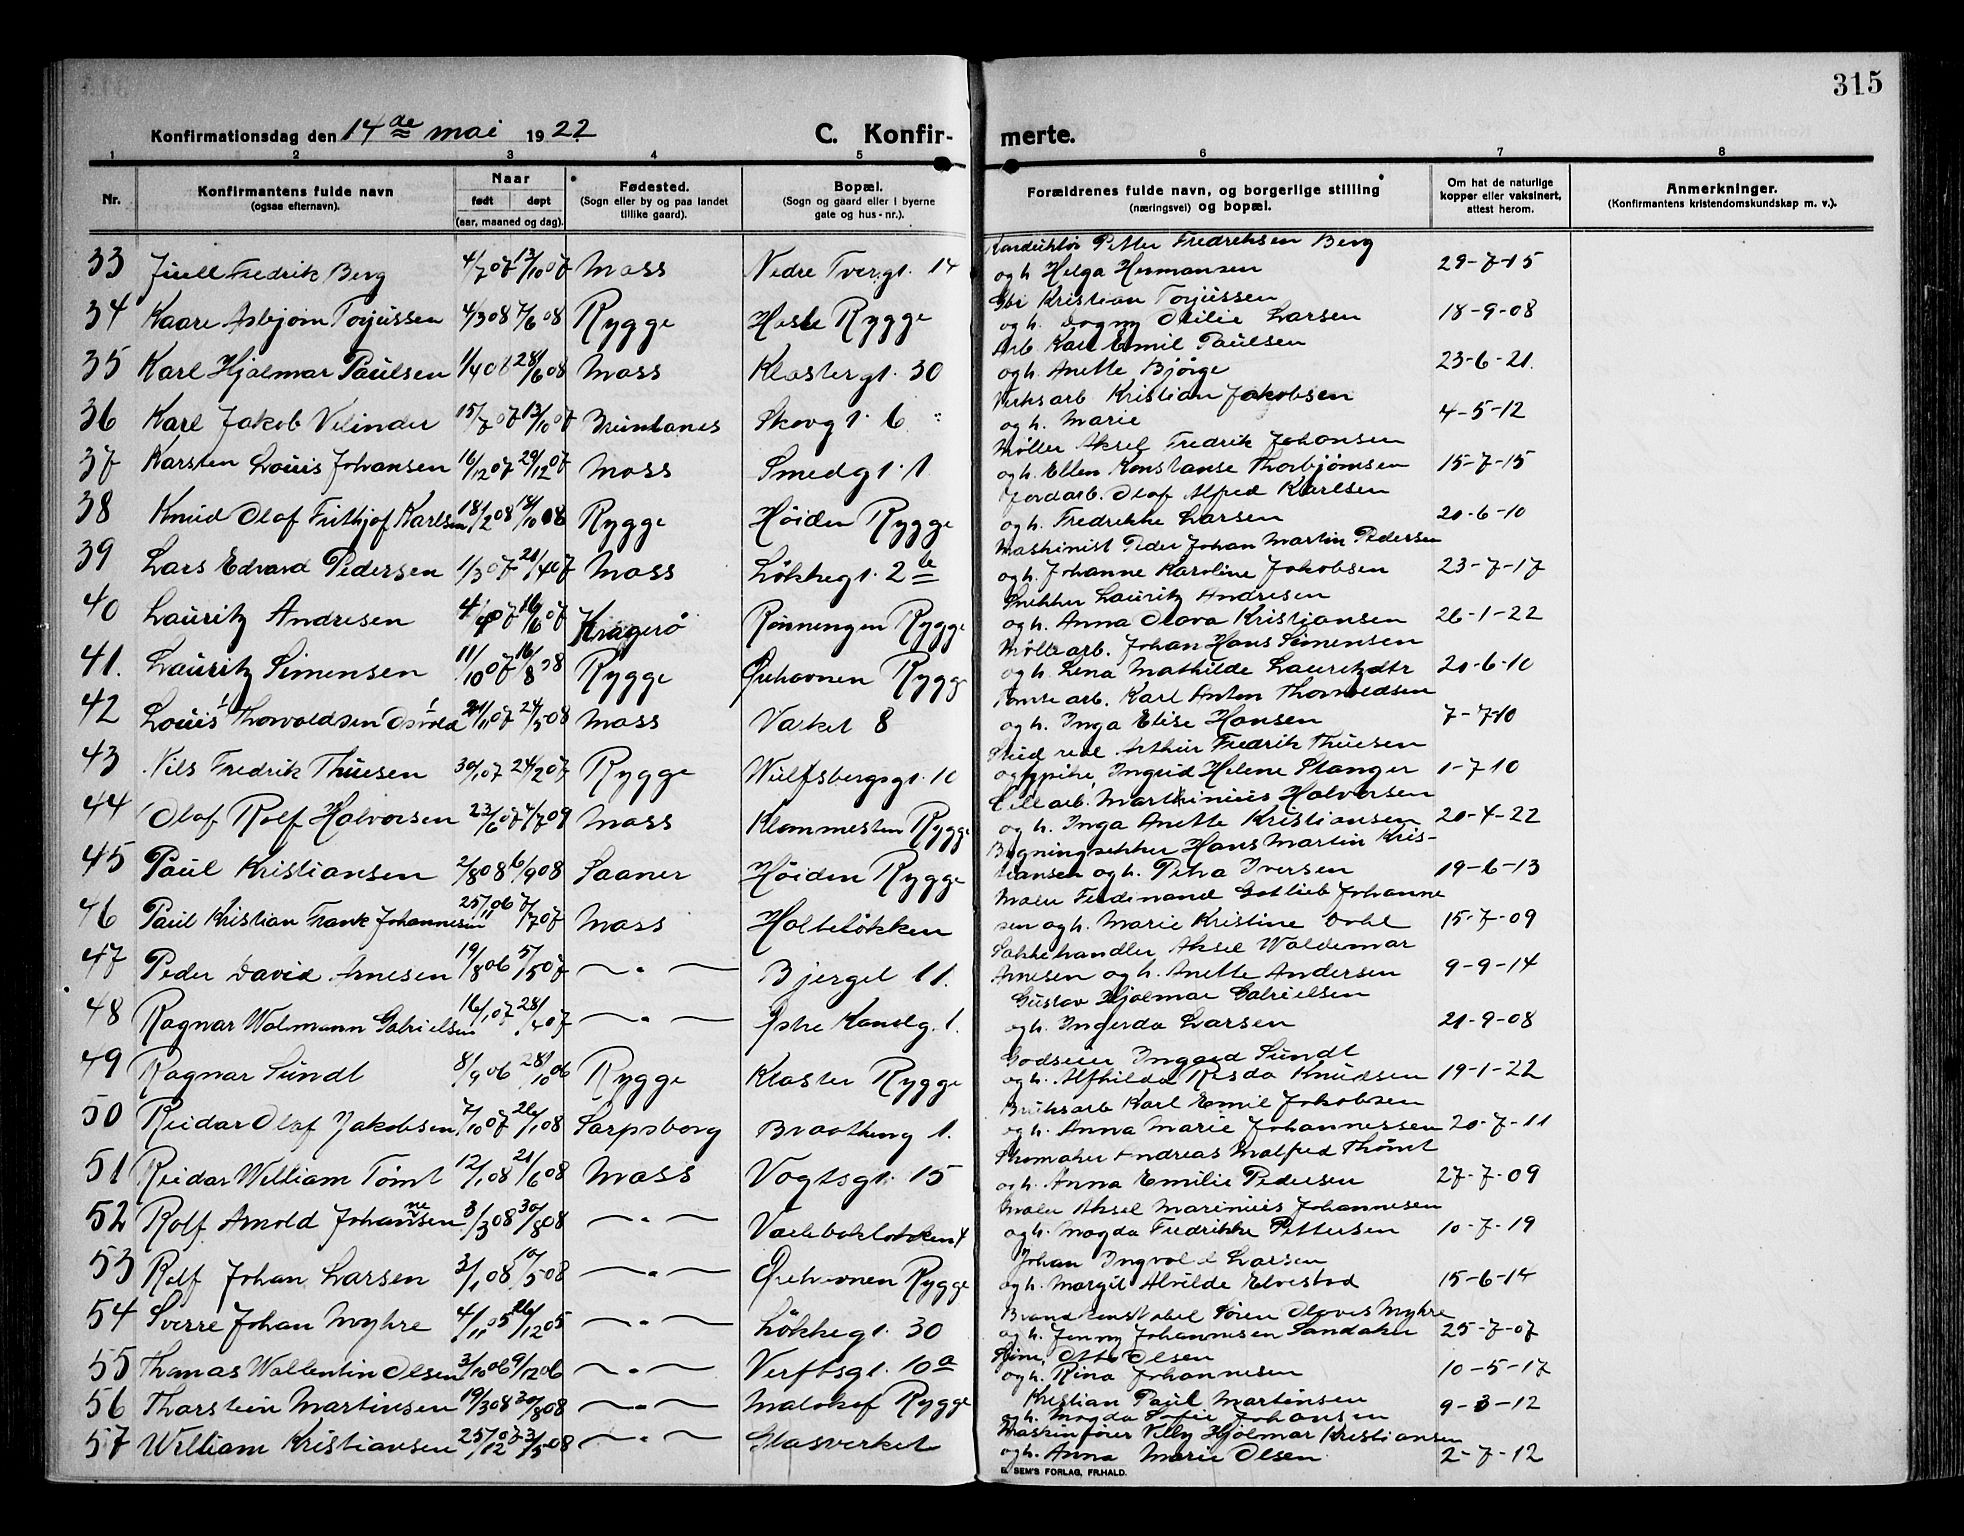 315
Konfirmationsdag den 14de mai 1922.
C. Konfir- merte.
1 2 3 4 5 6 7 8
Nr. Konfirmantens fulde navn (ogsaa efternavn). Naar født døpt (aar, maaned og dag). Fødested. (Sogn eller by og paa landet tillike gaard). Bopæl. (Sogn og gaard eller i byerne gate og hus-nr.). Forældrenes fulde navn, og borgerlige stilling (næringsvei) og bopæl. Om hat de naturlige kopper eller vaksinert, attest herom. Anmerkninger. (Konfirmantens kristendomskundskap m. v.).
33 Juell Fredrik Berg 4/7 07 13/10 07 Moss Nedre Tvergt. 14 Petter Fredriksen Berg
og h. Helga Hermansen 29-7-15
34 Kaare Asbjørn Torjussen 4/3 08 7/6 08 Rygge Rygge Kristian Torjussen
og h. Dagny Otilie Larsen 18-9-08
35 Karl Hjalmar Paulsen 1/4 08 28/6 08 Moss Klostergt. 30 Arb. Karl Emil Paulsen
og h. Anette Bjørge 23-6-21.
36 Karl Jakob Velinder 15/7 07 13/10 07 Skovgt. 6 Kristian Jakobsen
og h. Marie 4-5-12
37 Karsten Louis Johansen 16/12 07 29/12 07 Moss Smedgt. 1 Møller Aksel Fredrik Johansen
og h. Ellen Konstanse Thorbjørnsen 15-7-15
38 Knud Olaf Frithjof Karlsen 18/2 08 18/10 08 Rygge Høiden Rygge Jordarb. Olaf Alfred Karlsen
og h. Fredrikke Larsen 20-6-10
39 Lars Edvard Pedersen 1/3 07 21/4 07 Moss Løkkegt. 2 Maskinist Peder Johan Martin Pedersen
og h. Johanne Karoline Jakobsen 23-7-17
40 Lauritz Andresen 16/6 07 Kragerø Rønningen Rygge Snekker Lauritz Andresen
og h. Anna Olava Kristjansen 26-1-22
41. Lauritz Simensen 11/10 07 16/8 08 Rygge Ørehavnen Rygge Møllearb. Johan Hans Simensen
og h. Lena Mathilde Lauritzdtr 20-6-10
42 Louis Thorvaldsen Osvold 21/11 07 24/5 08 Moss Værket 8 Karl Anton Thorvaldsen
og h. Inga Elise Hansen 7-7-10
43 Nils Fredrik Thuesen 30/1 07 24/2 07 Rygge Wulfsbergsgt. 10 Arthur Fredrik Thuesen
Ingrid Helene Stanger 1-7-10
44 Olaf Rolf Halvorsen 23/6 07 4/7 09 Moss Klommesten Rygge Martinius Halvorsen
og h. Inga Anette Kristiansen 20-4-22
45 Paul Kristiansen 2/8 08 6/9 08 Saaner Høiden Rygge Hans Martin Kris-
tiansen og h. Petra Iversen 19-6-13
46 Paul Kristian Frank Johannesen 25/11 06 7/7 07 Moss Holteløkken Maler Ferdinand Gotlieb Johanne
sen og h. Marie Kristine Dahl 15-7-09
47 Peder David Arnesen 19/8 06 5/5 07 — " — Bjerget 11. Sakkehandler Aksel Waldemar
Arnesen og h. Anette Andersen 9-9-14
48 Ragnar Walmann Gabrielsen 16/1 07 28/4 07 — " — Østre Kanalg. 1. Gustav Hjalmar Gabrielsen
og h. Ingerda Larsen 21-9-08
49 Ragnar Sundt 8/9 06 28/10 06 Rygge Kloster Rygge Godseier Ingard Sundt
og h. Alfhilda Resda Knudsen 19-1-22
50 Reidar Olaf Jakobsen 7/10 07 26/1 08 Sarpsborg Braatteng 1. Bruksarb Karl Emil Jakobsen
og h. Anna Marie Johannessen 20-7-11
51 Reidar William Tømt 12/1 08 21/6 08 Moss Vogtsgt. 15 Skomaker Andreas Malfred Thømt
og h. Anna Emilie Pedersen 27-7-09
52 Rolf Arnold Johannesen 3/3 08 30/8 08 — " — Maler Aksel Marinius Johannesen
og h. Magda Fredrikke Pettersen 10-7-19
53 Rolf Johan Larsen 3/1 08 10/5 08 — " — Ørehavnen Rygge Johan Ingvald Larsen
og h. Margit Alvilde Elvestad 15-6-14
54 Sverre Johan Myhre 4/11 05 26/12 05 — " — Løkkegt. 30 Brandkonstabel Søren Olaves Myhre
og h. Jenny Johannesen Sandaker 25-7-07
55 Thomas Wallentin Olsen 3/10 06 9/12 06 — " — Verftsgt. 10a Otto Olsen
og h. Rina Johannesen 10-5-17
56 Thorstein Martinsen 19/3 08 30/8 08 — " — Malakof Rygge Kristian Paul Martinsen
og h. Magda Sofie Johansen 9-3-12
57 William Kristiansen 25/12 07 3/5 08 — " — Glasverket Maskinfører Villy Hjalmar Kristiansen
og h. Anna Marie Olsen 2-7-12
E. SEM'S FORLAG, FR.HALD.